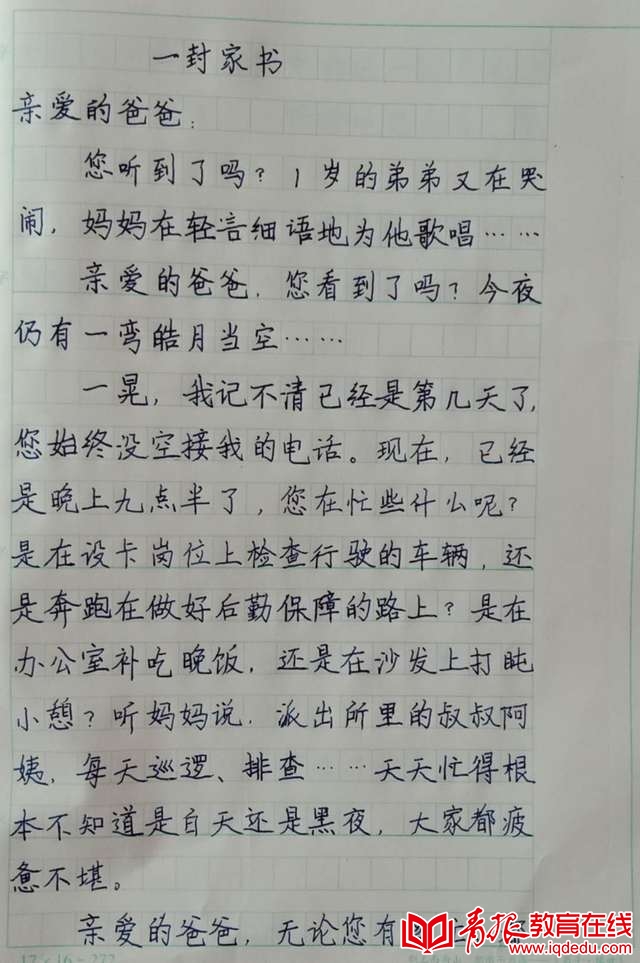 一封家书
亲爱的爸爸：
您听到了吗？1岁的弟弟又在哭
闹，妈妈在轻言细语地为他歌唱……
亲爱的爸爸，您看到了吗？今夜
仍有一弯皓月当空……
一晃，我记不清已经是第几天了，
您始终没空接我的电话。现在，已经
是晚上九点半了，您在忙些什么呢？
是在设卡岗位上检查行驶的车辆，还
是奔跑在做好后勤保障的路上？是在
办公室补吃晚饭，还是在沙发上打盹
小憩？听妈妈说，派出所里的叔叔阿
姨，每天巡逻、排查……天天忙得根
本不知道是白天还是黑夜，大家都疲
惫不堪。
亲爱的爸爸，无论您有
青报教育在线
www.iqdedu.com
17×16=272